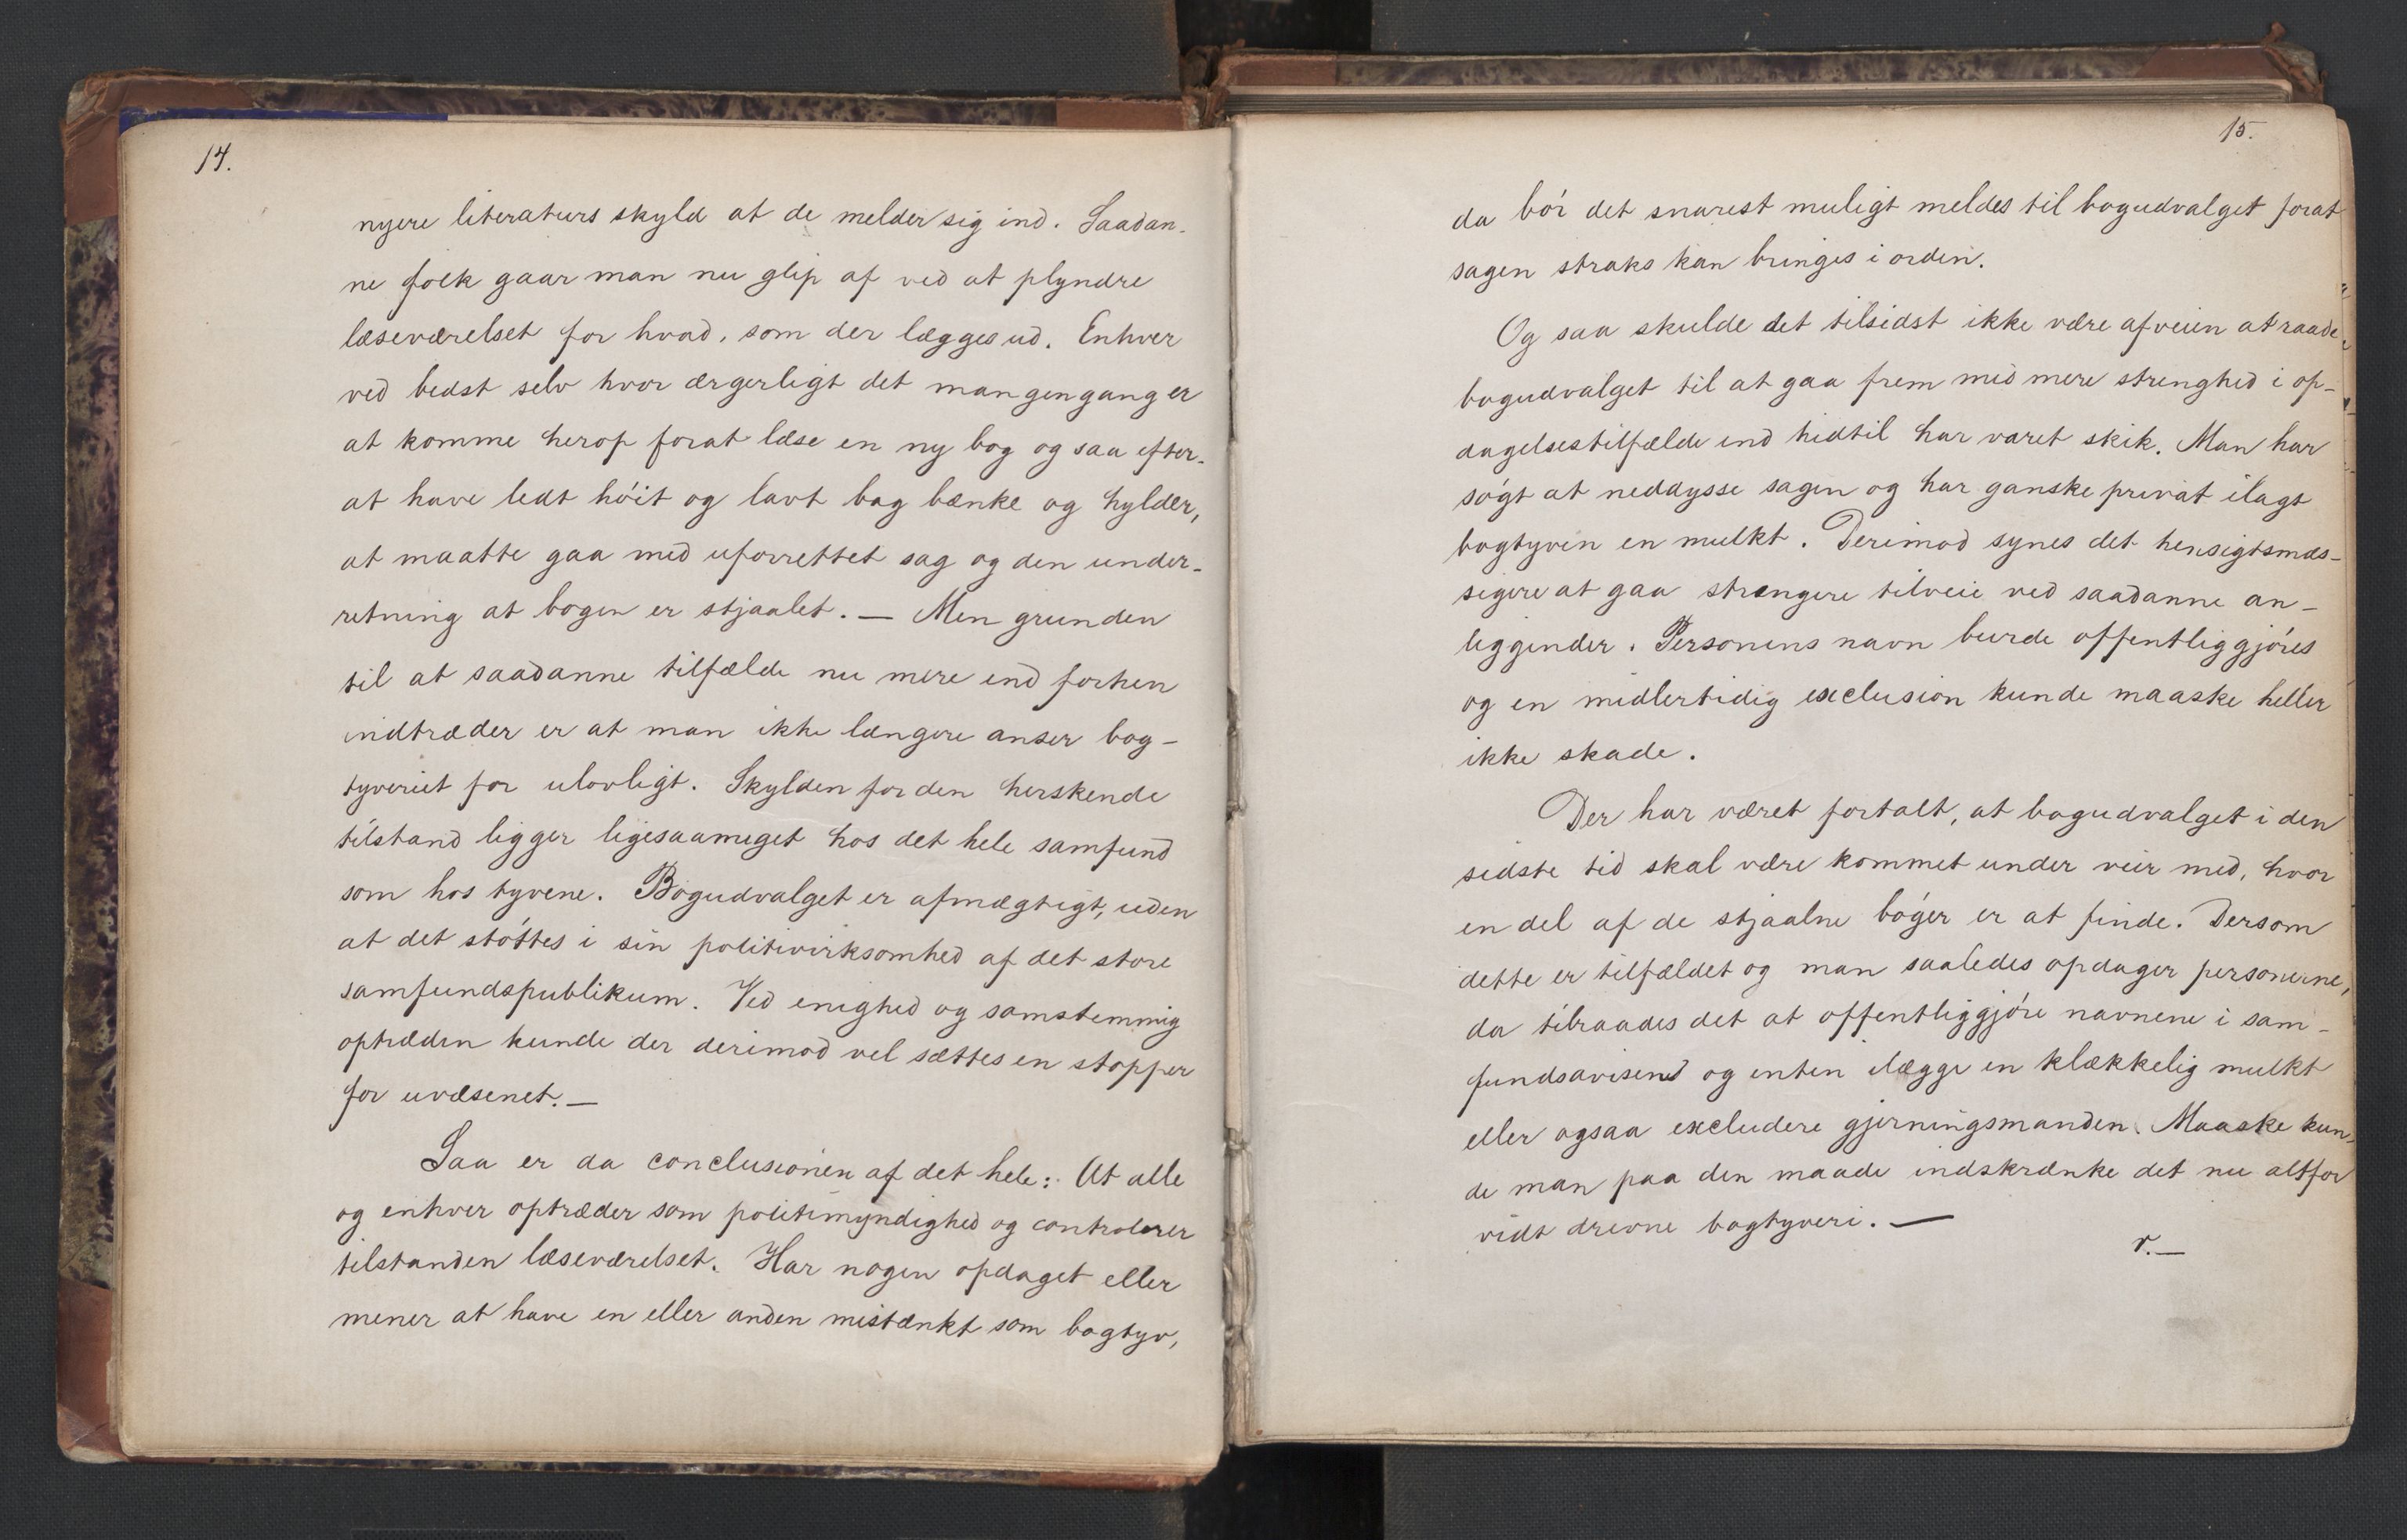 14.
nyere literaturs skyld at de melder sig ind. Saadan-
ne folk gaar man nu glip af ved at plyndre
læseværelset for hvad, som der lægges ud. Enhver
ved bedst selv hvor ærgerligt det mangengang er
at komme herop forat læse en ny bog og saa efter-
at have ledt høit og lavt bag bænke og hylder,
at maatte gaa med uforrettet sag og den under-
retning at bogen er stjaalet. — Men grunden
til at saadanne tilfælde nu mere end forhen
indtræder er at man ikke længere anser bog-
tyveriet for ulovligt. Skylden for den herskende
tilstand ligger ligesaameget hos det hele samfund
som hos tyvene. Bogudvalget er afmægtigt, uden
at det støttes i sin politivirksomhed af det store
samfundspublikum. Ved enighed og samstemmig
optræden kunde der derimod vel sættes en stopper
for uvæsenet. —
Saa er da conclusionen af det hele: At alle
og enhver optræder som politimyndighed og controlerer
tilstanden læseværelset. Har nogen opdaget eller
mener at have en eller anden mistænkt som bogtyv,
15.
da bør det snarest muligt meldes til bogudvalget forat
sagen straks kan bringes i orden.
Og saa skulde det tilsidst ikke være afveien at raade
bogudvalget til at gaa frem med mere strenghed i op-
dagelsestilfælde end hidtil har været skik. Man har
søgt at neddysse sagen og har ganske privat ilagt
bogtyven en mulkt. Derimod synes det hensigtsmæs-
sigere at gaa strængere tilveie ved saadanne an-
liggender. Personens navn burde offentliggjøres
og en midlertidig exclusion kunde maaske heller
ikke skade.
Der har været fortalt, at bogudvalget i den
sidste tid skal være kommet under veir med, hvor
en del af de stjaalne bøger er at finde. Dersom
dette er tilfældet og man saaledes opdager personerne,
da tilraades det at offentliggjøre navnene i sam-
fundsavisen og enten ilægge en klækkelig mulkt
eller ogsaa excludere gjerningsmanden. Maaske kun-
de man paa den maade indskrænke det nu altfor
vidt drevne bogtyveri. —
r. —